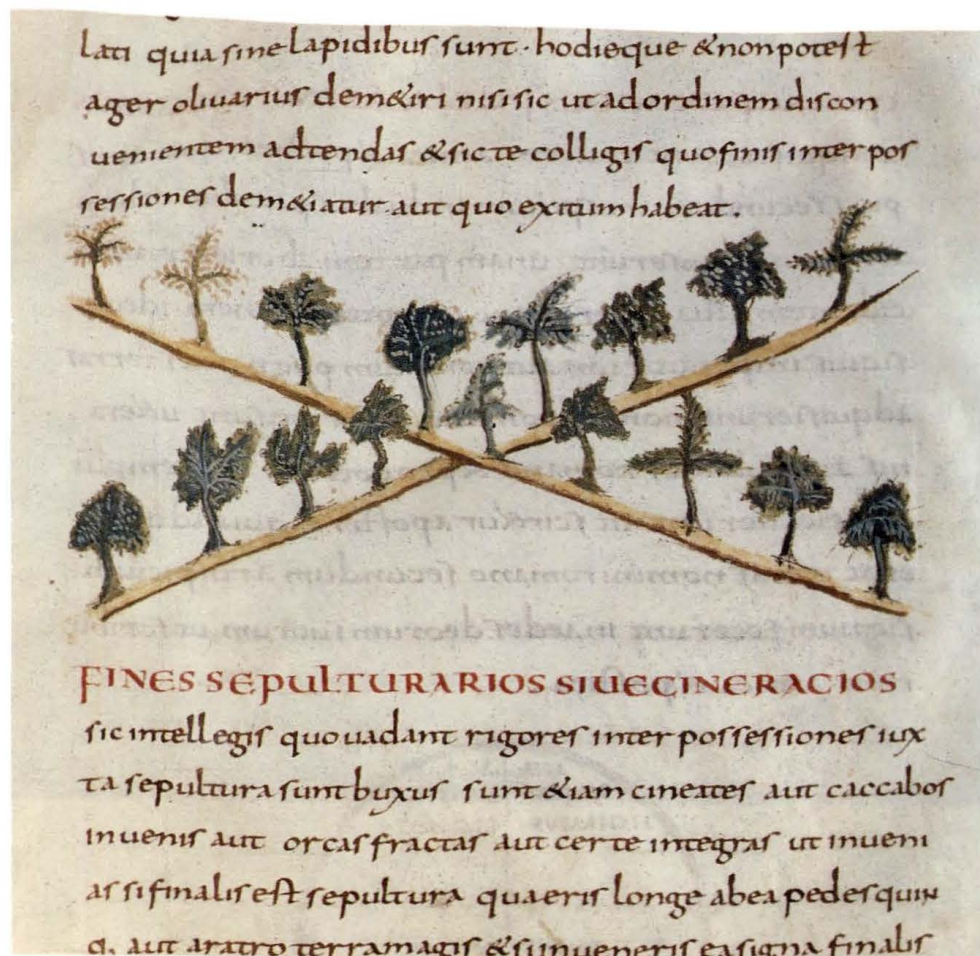 lati quia sine lapidibus sunt · hodieque & non potest
ager olivarius dem&iri nisi sic ut ad ordinem discon
uenientem adtendas & sic te colligis quo finis inter pos
sessiones dem&iatur aut quo exitum habeat.
FINES SEPULTURARIOS SIUE CINERACIOS
sic intellegis quo uadant rigores inter possessiones iux
ta sepultura sunt buxus sunt &iam cineates aut caccabos
inuenis aut orcas fractas aut certe integras ut inueni
as si finalis est sepultura quaeris longe ab ea pedes quin
q. aut aratro terra magis & si inueneris ea signa finalis